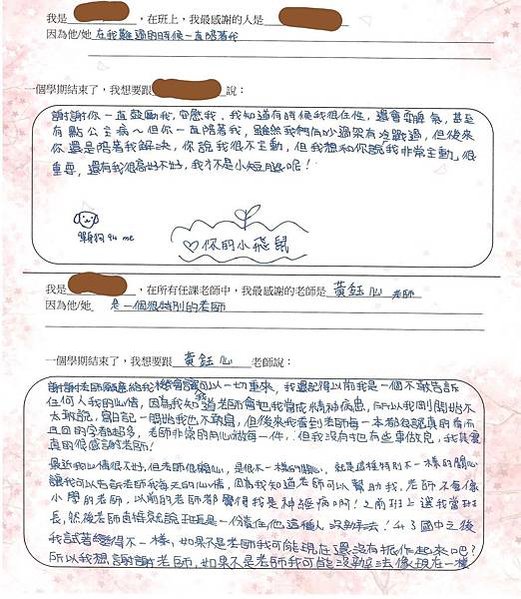 我是 ，在班上，我最感謝的人是
因為他/她 在我難過的時候一直陪著我
一個學期結束了，我想要跟 說：
謝謝你一直鼓勵我，安慰我，我知道有時候我很任性，還會鬧脾氣，甚至
有點公主病～但你一直陪著我，雖然我們有吵過架有冷戰過，但後來
你還是陪著我解決，你說我很不主動，但我想和你說「我非常主動」很
重要，還有我很高好不好，我才不是小短腿呢！
94 me
♡你的小飛鼠
我是 ，在所有任課老師中，我最感謝的老師是 黃鈺心 老師
因為他/她 是一個很特別的老師
一個學期結束了，我想要跟 黃鈺心 老師說：
謝謝老師願意給我機會讓我可以一切重來，我還記得以前我是一個不敢告訴
任何人我的心情，因為我知道老師會把我當成精神病患，所以我剛開始不
太敢說，寫日記一開始我也不敢寫，但後來我看到老師每一本都很認真的看而
且回的字都超多，老師非常的用心做每一件，但我沒有把有些事做完，我其實
真的很感謝老師！
最近我心情很不好，但老師很關心，是很不一樣的關心，就是這種特別不一樣的關心
讓我可以告訴老師我每天的心情，因為我知道老師可以幫助我，老師不會像
小學的老師，以前的老師都覺得我是神經病啊！之前班上選我當班
長，然後老師直接就說班長是一份責任他這種人沒辦法！升了國中之後
我試著變得不一樣，如果不是老師我可能現在還沒有振作起來吧？
所以我想謝謝老師，如果不是老師我可能沒辦法像現在一樣